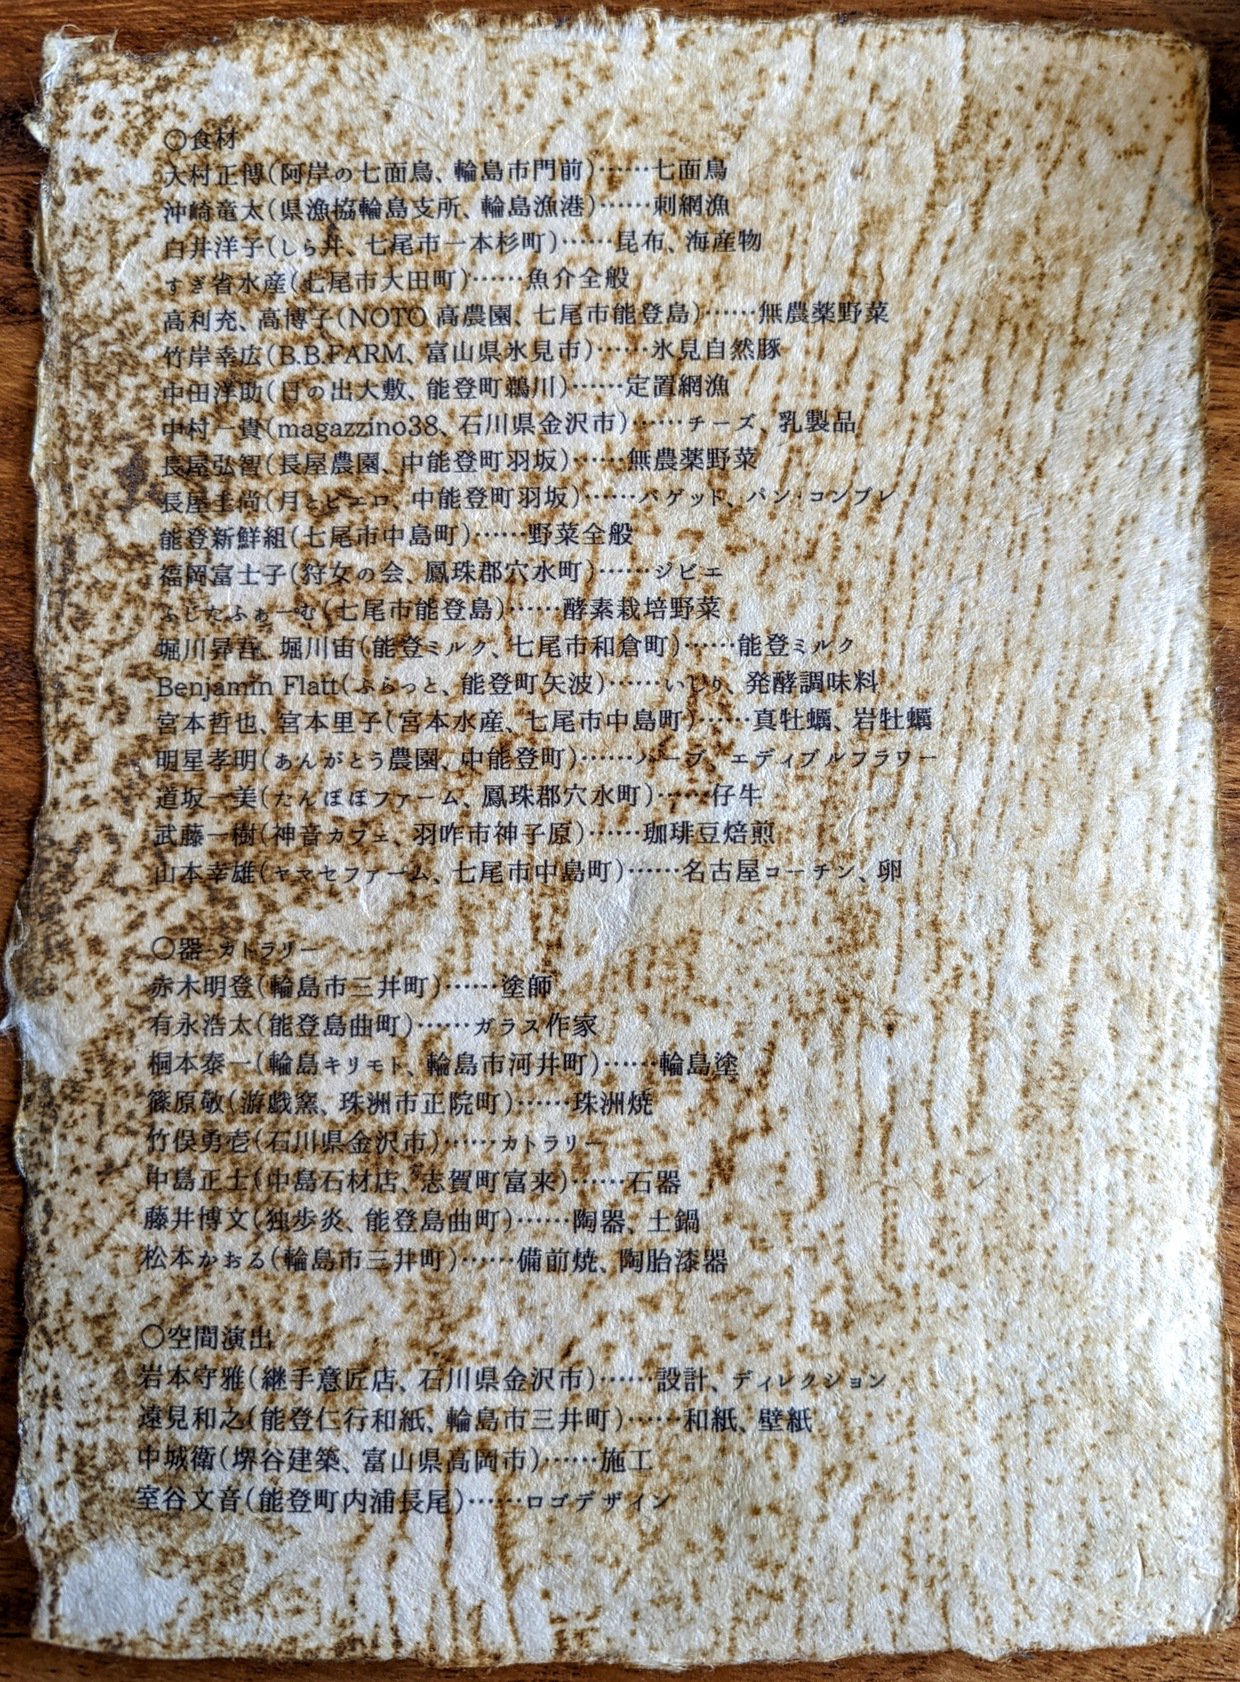 〇食材
大村正博(阿岸の七面鳥、輪島市門前)……七面鳥
沖崎竜太(県漁協輪島支所、輪島漁港)……刺網漁
白井洋子(しら井、七尾市一本杉町)……昆布、海産物
すぎ省水産(七尾市大田町)……魚介全般
高利充、高博子(NOTO 高農園、七尾市能登島)……無農薬野菜
竹岸幸広(B.B.FARM、富山県氷見市)……氷見自然豚
中田洋助(日の出大敷、能登町鵜川)……定置網漁
中村一貴(magazzino38、石川県金沢市)……チーズ、乳製品
長屋弘智(長屋農園、中能登町羽坂)……無農薬野菜
長屋圭尚(月とピエロ、中能登町羽坂)……バゲット、パン・コンプレ
能登新鮮組(七尾市中島町)……野菜全般
福岡富士子(狩女の会、鳳珠郡穴水町)……ジビエ
ふじたふぁーむ(七尾市能登島)……酵素栽培野菜
堀川昇吾、堀川宙(能登ミルク、七尾市和倉町)……能登ミルク
Benjamin Flatt(ふらっと、能登町矢波)……いしり、発酵調味料
宮本哲也、宮本里子(宮本水産、七尾市中島町)……真牡蠣、岩牡蠣
明星孝明(あんがとう農園、中能登町)……ハーブ、エディブルフラワー
道坂一美(たんぽぽファーム、鳳珠郡穴水町)……仔牛
武藤一樹(神音カフェ、羽咋市神子原)……珈琲豆焙煎
山本幸雄(ヤマセファーム、七尾市中島町)……名古屋コーチン、卵
〇器・カトラリー
赤木明登(輪島市三井町)……塗師
有永浩太(能登島曲町)……ガラス作家
桐本泰一(輪島キリモト、輪島市河井町)……輪島塗
篠原敬(游戯窯、珠洲市正院町)……珠洲焼
竹俣勇壱(石川県金沢市)……カトラリー
中島正士(中島石材店、志賀町富来)……石器
藤井博文(独歩炎、能登島曲町)……陶器、土鍋
松本かおる(輪島市三井町)……備前焼、陶胎漆器
〇空間演出
岩本守雅(継手意匠店、石川県金沢市)……設計、ディレクション
遠見和之(能登仁行和紙、輪島市三井町)……和紙、壁紙
中城衛(堺谷建築、富山県高岡市)……施工
室谷文音(能登町内浦長尾)……ロゴデザイン